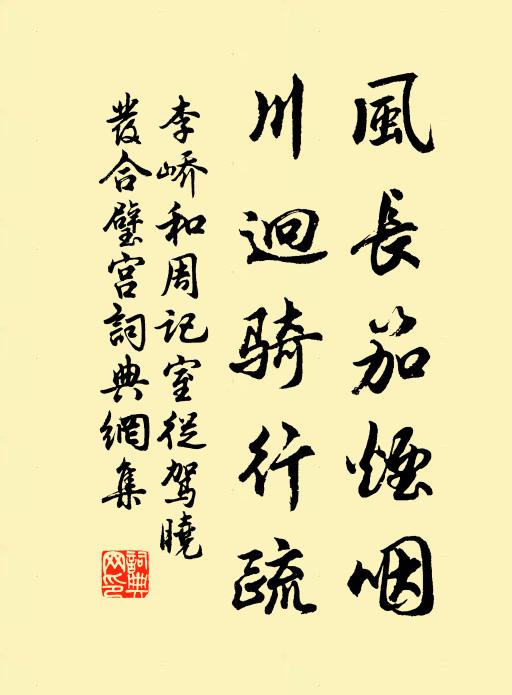 風長笳煙咽
川迴騎行疏
李嶠和周記室從駕曉
發合璧宫詞典網集
詞典
网印